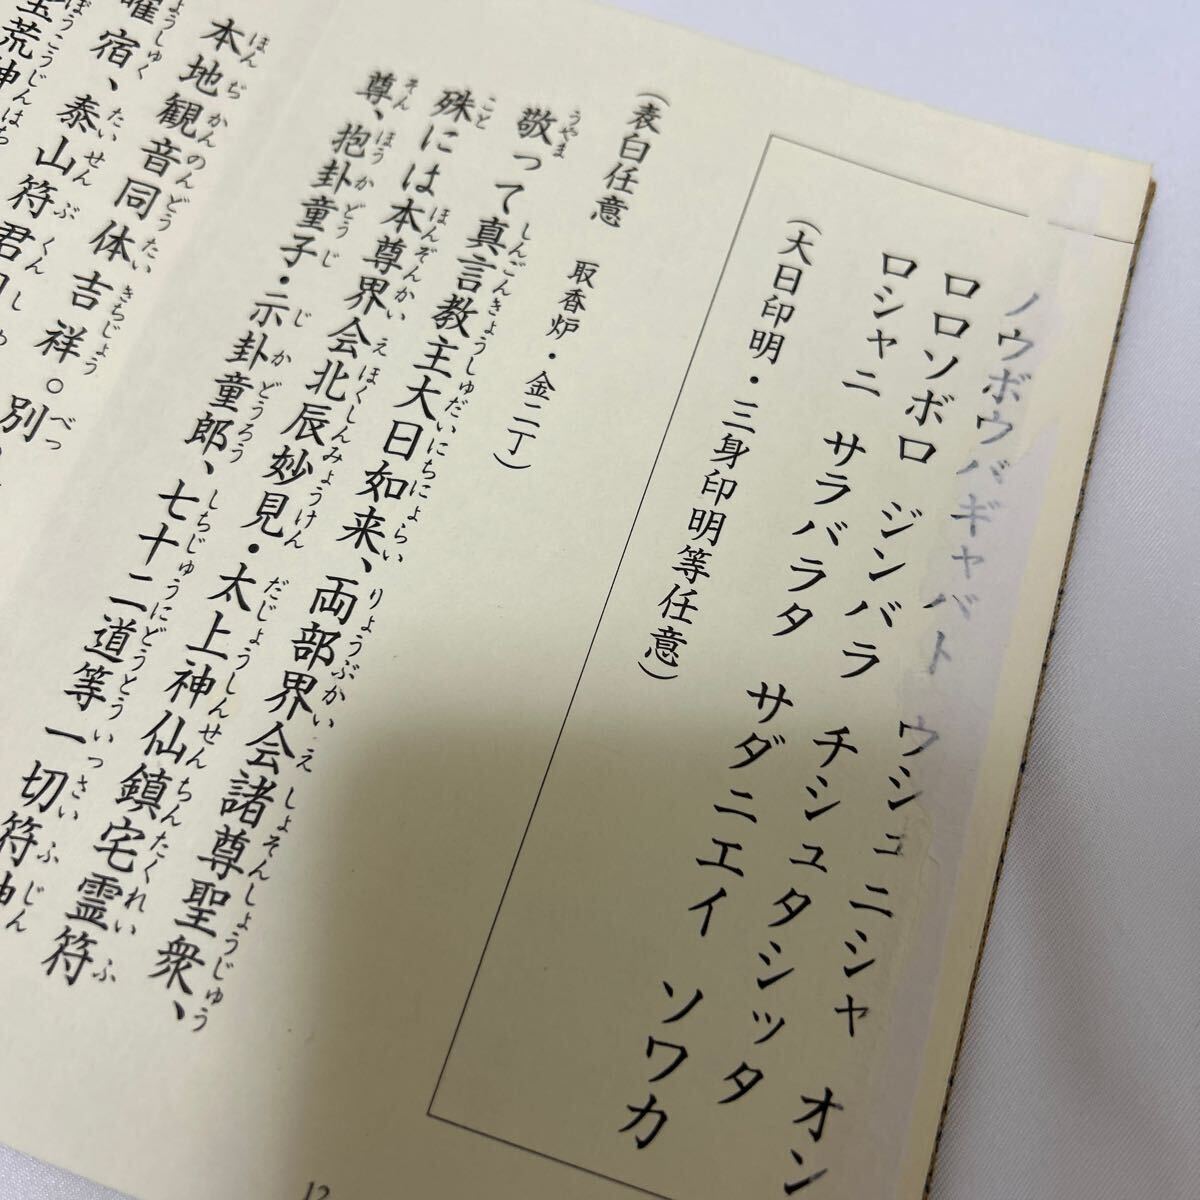 ノウボウバギャバト ウシュニシャ オン
ロロソボロ ジンバラ チシュタシッタ
ロシャニ サラバラタ サダニエイ ソワカ
(大日印明・三身印明等任意)
(表白任意 取香炉・金二丁)
敬って真言教主大日如来、両部界会諸尊聖衆、
殊には本尊界会北辰妙見・太上神仙鎮宅霊符
尊、抱卦童子・示卦童郎、七十二道等一切符神
本地観音同体吉祥。
曜宿、泰山符君
荒神
別
12